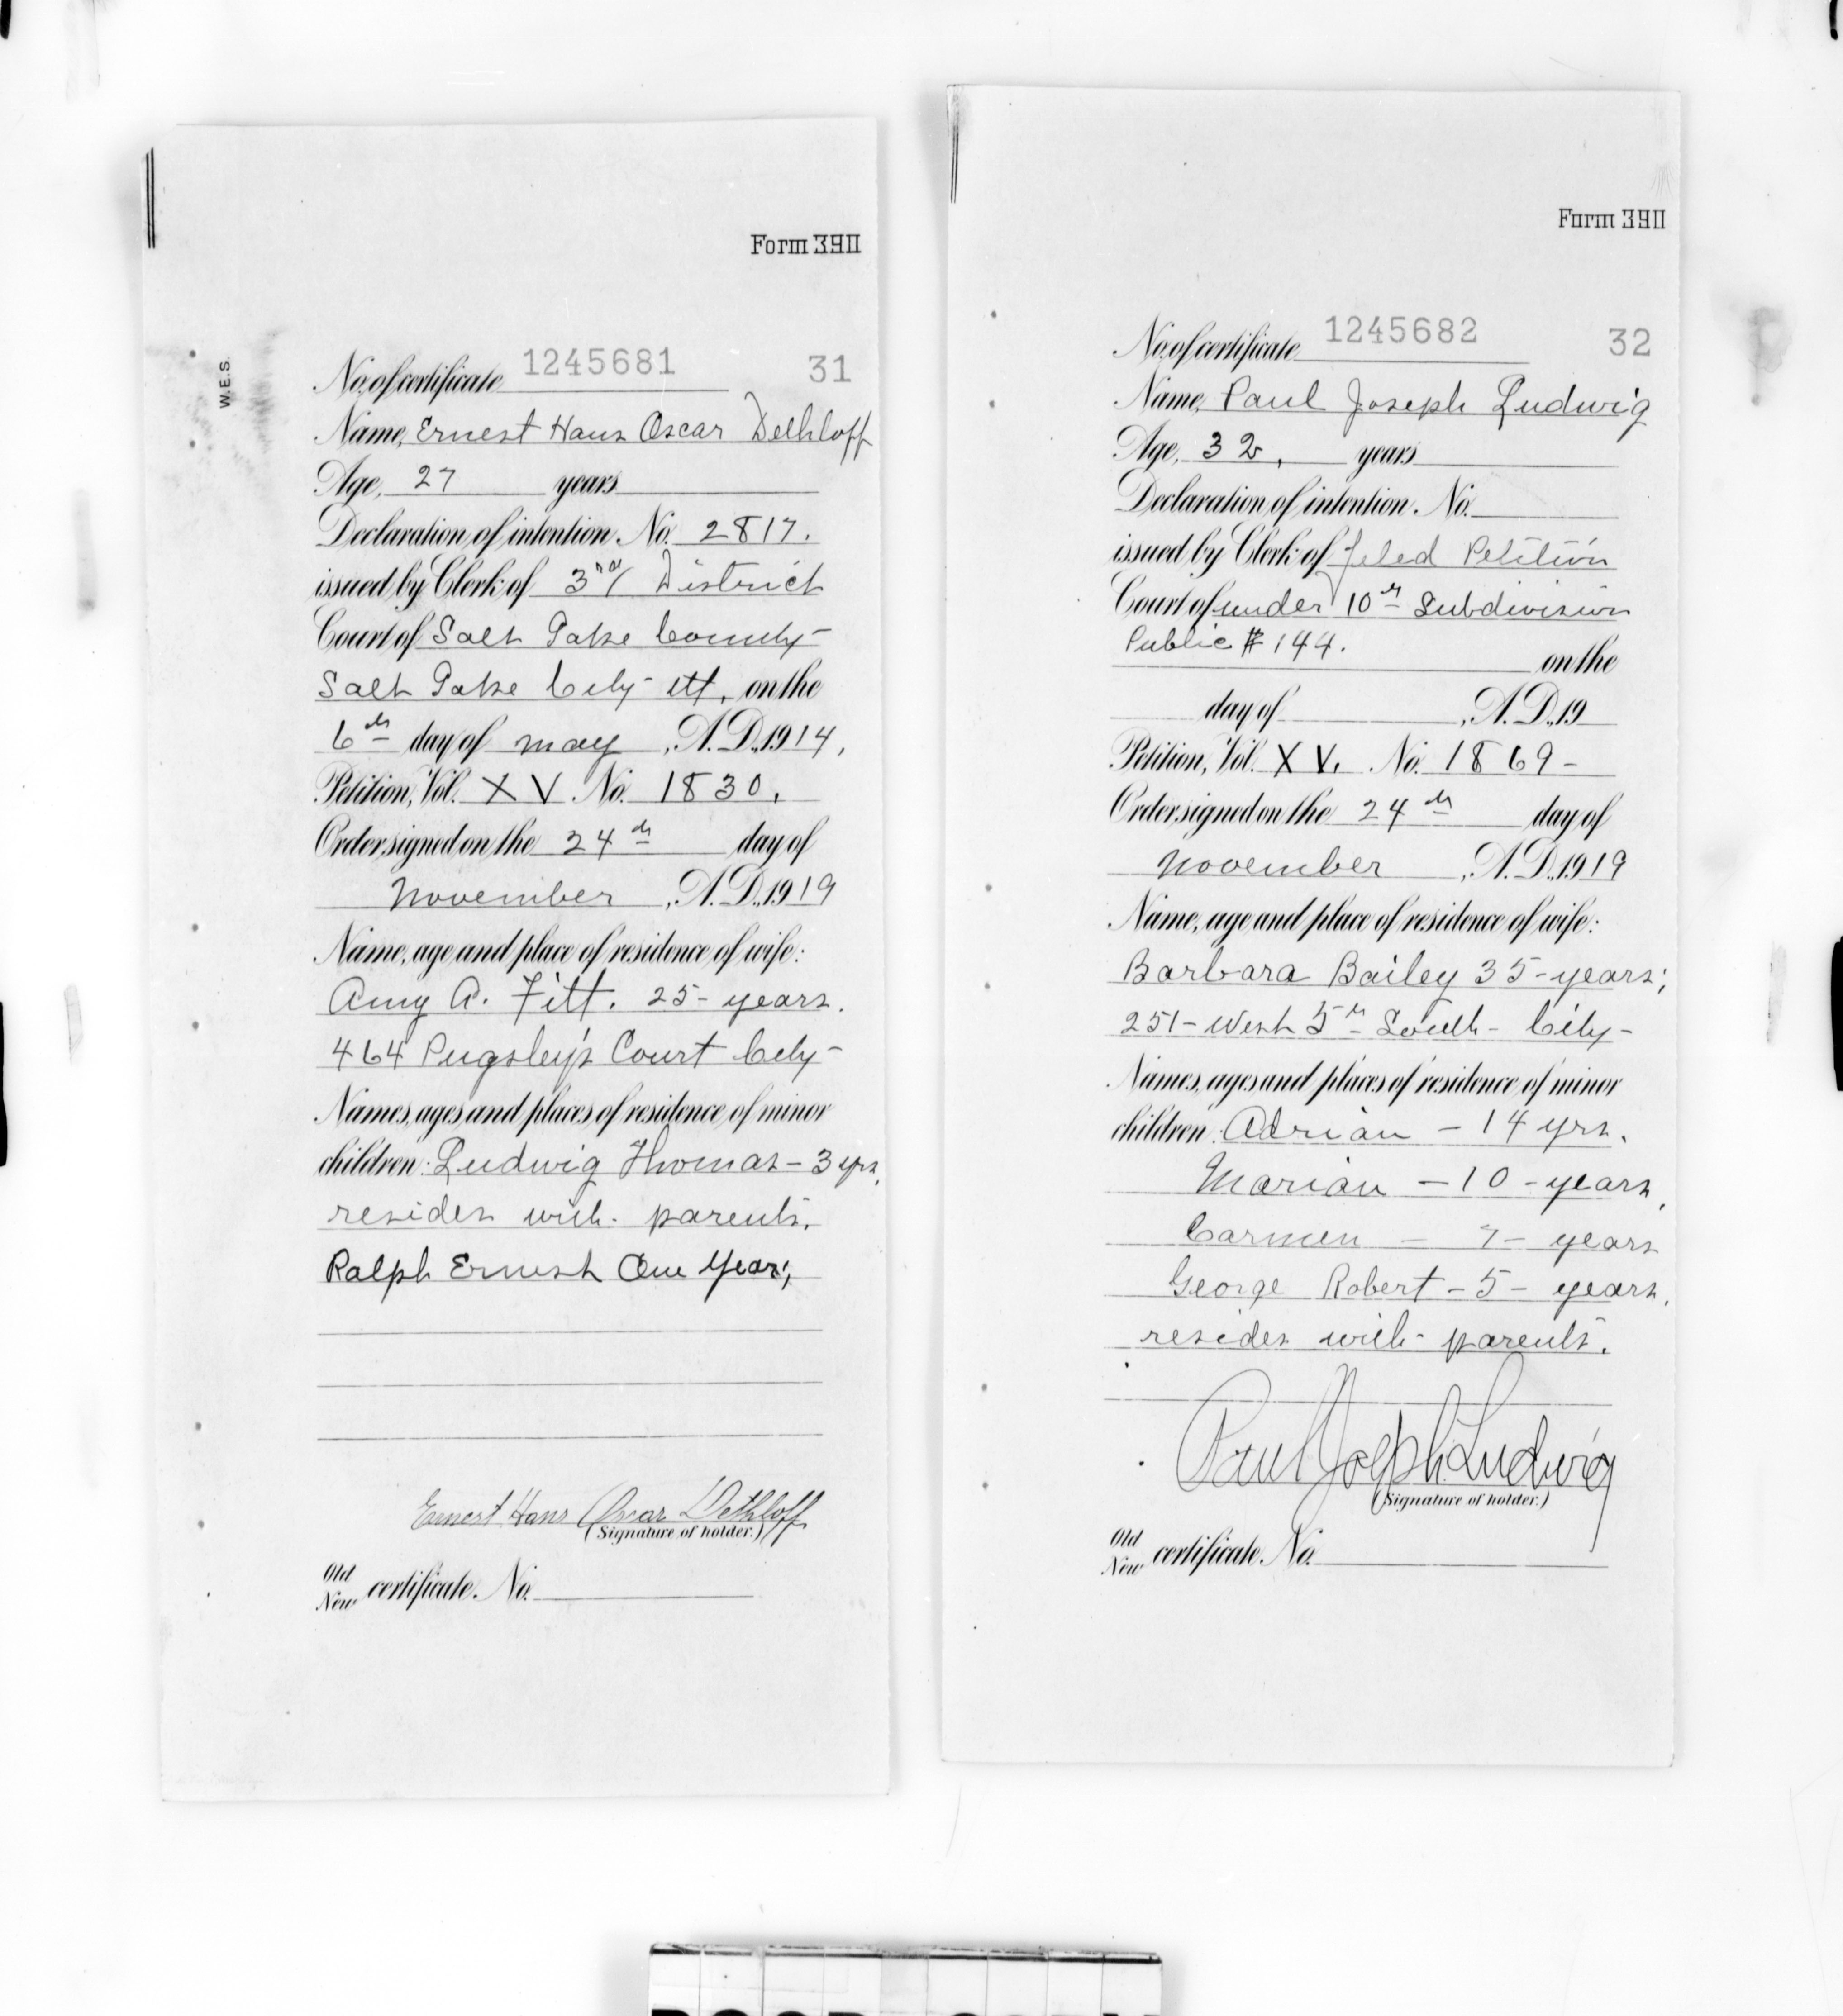 Form 390
W.E.S.
No. of certificate 1245681 31
Name, Ernest Hans Oscar Dethloff
Age, 27 years
Declaration of intention. No. 2817.
issued by Clerk of 3rd District
Court of Salt Lake County
Salt Lake City Ut, on the
6th day of May, A.D. 1914,
Petition, Vol. XV No. 1830,
Order signed on the 24th day of
November, A.D. 1919
Name, age and place of residence of wife:
Amy A. Fitt. 25 - years.
464 Pugsley's Court City -
Names, ages and places of residence of minor
children: Ludwig Thomas - 3 yrs,
resides with parents.
Ralph Ernest One Year;
Ernest Hans Oscar Dethloff
(Signature of holder.)
Old
New certificate. No.
Form 390
No. of certificate 1245682 32
Name, Paul Joseph Ludwig
Age, 32, years
Declaration of intention. No.
issued by Clerk of filed Petition
Court of under 10th Subdivision
Public # 144. on the
day of , A.D. 19
Petition, Vol. XV, No. 1869 -
Order signed on the 24th day of
November, A.D. 1919
Name, age and place of residence of wife:
Barbara Bailey 35 - years;
251 - West 5th South - City -
Names, ages and places of residence of minor
children: Adrian - 14 yrs.
Marian - 10 - years,
Carmen - 7 - years
George Robert - 5 - years,
resides with parents.
Paul Joseph Ludwig
(Signature of holder.)
Old
New certificate. No.